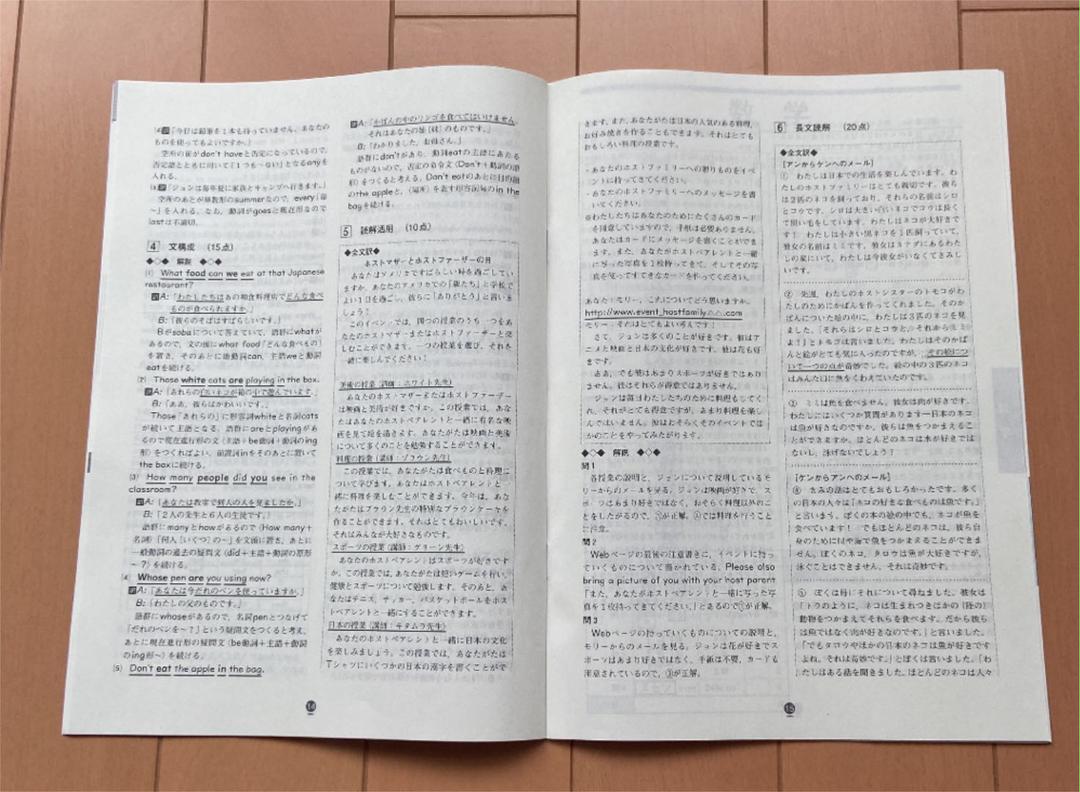 訳「今日は鉛筆を1本も持っていません。あなたの
ものを使ってもよいですか。」
空所の前がdon't haveと否定になっているので、
否定語とともに用いて「1つも〜ない」となるanyを
入れる。
訳「ジョンは毎年夏に家族とキャンプへ行きます。」
空所のあとが単数形のsummerなので、every「毎
〜」を入れる。なお、動詞がgoesと現在形なので
lastは不適切。
4 文構成 (15点)
◆◇◆ 解説 ◆◇◆
(1) What food can we eat at that Japanese
restaurant?
訳A:「わたしたちはあの和食料理店でどんな食べ
ものが食べられますか。」
B:「彼らのそばはすばらしいです。」
Bがsobaについて答えていて、語群にwhatが
あるので、文の頭にwhat food「どんな食べもの」
を置き、そのあとに助動詞can、主語weと動詞
eatを続ける。
(2) Those white cats are playing in the box.
訳A:「あれらの白いネコが箱の中で遊んでいます。」
B:「ああ、彼らはかわいいです。」
Those「あれらの」に形容詞whiteと名詞cats
が続いて主語となる。語群にareとplayingがあ
るので現在進行形の文〈主語+be動詞+動詞のing
形〉をつくればよい。前置詞inをそのあとに置いて
the boxに続ける。
(3) How many people did you see in the
classroom?
訳A:「あなたは教室で何人の人を見ましたか。」
B:「2人の先生と6人の生徒です。」
語群にmanyとhowがあるので〈How many+
名詞〉「何人[いくつ]の〜」を文頭に置き、あとに
一般動詞の過去の疑問文〈did+主語+動詞の原形
〜?〉を続ける。
(4) Whose pen are you using now?
訳A:「あなたは今だれのペンを使っていますか。」
B:「わたしの父のものです。」
語群にwhoseがあるので、名詞penとつなげて
「だれのペンを〜?」という疑問文をつくると考え、
あとに現在進行形の疑問文〈be動詞+主語+動詞
のing形〜〉を続ける。
(5) Don't eat the apple in the bag.
14
訳A:「かばんの中のリンゴを食べてはいけません。
それはあなたの姉(妹)のものです。」
B:「わかりました、お母さん。」
語群にdon'tがあり、動詞eatの主語にあたる
ものがないので、否定の命令文〈Don't+動詞の原
形〉をつくると考える。Don't eatのあとに目的語
のthe appleと、〈場所〉を表す前置詞句のin the
bagを続ける。
5 読解活用 (10点)
◆全文訳◆
ホストマザーとホストファーザーの日
あなたはアメリカですばらしい時を過ごしてい
ますか。あなたのアメリカでの「親たち」と学校で
よい1日を過ごし、彼らに「ありがとう」と言いま
しょう!
このイベントでは、四つの授業のうち一つをあ
なたのホストマザーまたはホストファーザーと楽
しむことができます。一つの授業を選び、それを
一緒に楽しんでください!
美術の授業(講師:ホワイト先生)
あなたのホストマザーまたはホストファーザー
は映画と美術が好きですか。この授業では、あな
たはあなたのホストペアレントと一緒に有名な映
画を見て絵を描きます。あなたたちは映画と美術
について多くのことを勉強することができます。
料理の授業(講師:ブラウン先生)
この授業では、あなたがたは食べものと料理に
ついて学びます。あなたはホストペアレントと一
緒に料理を楽しむことができます。今年は、あな
たがたはブラウン先生の特別なブラウンケーキを
作ることができます。それはとてもおいしいです。
それはみんなが大好きなものです。
スポーツの授業(講師:グリーン先生)
あなたのホストペアレントはスポーツが好きです
か。この授業では、あなたがたは短いゲームを行い、
健康とスポーツについて勉強します。そのあと、あ
なたはテニス、サッカー、バスケットボールをホス
トペアレントと一緒にすることができます。
日本の授業(講師:キタムラ先生)
あなたのホストペアレントと一緒に日本の文化
を楽しみましょう。この授業では、あなたがたは
Tシャツにいくつかの日本の漢字を書くことがで
きます。また、あなたがたは日本の人気のある料理、
お好み焼きを作ることもできます。それはとても
おもしろい料理の授業です。
・あなたのホストファミリーへの贈りものをイベ
ントに持ってきてください。
・あなたのホストファミリーへのメッセージを書
いてください。
※わたしたちはあなたのためにたくさんのカード
を用意していますので、手紙は必要ありません。
あなたはカードにメッセージを書くことができ
ます。また、あなたがホストペアレントと一緒
に写った写真を1枚持ってきて、そしてその写
真を使ってすてきなカードを作ってください。
あなたモリー、これについてどう思いますか。
http://www.event_hostfamily.△△.com
モリー:それはとてもよい考えです!
さて、ジョンは多くのことが好きです。彼はア
ニメと映画と日本の文化が好きです。彼は花も好
きです。
ああ、でも彼はあまりスポーツが好きではあり
ません。彼はそれらが得意ではありません。
ジョンは毎日わたしたちのために料理もしてく
れ、それがとても得意ですが、あまり料理を楽し
んではいません。彼はおそらくそのイベントでは
かのことをやってみたがります。
◆◇◆ 解説 ◆◇◆
問1
各授業の説明と、ジョンについて説明しているモ
リーからのメールを見る。ジョンは映画が好きで、ス
ポーツはあまり好きではなく、おそらく料理以外のこ
とをしたがるので、
に注意。
問2
Webページの最後の注意書きに、イベントに持っ
ていくものについて書かれている。Please also
bring a picture of you with your host parent
「また、あなたがホストペアレントと一緒に写った写
真を1枚持ってきてください。」とあるので③が正解。
問3
Webページの持っていくものについての説明と、
モリーからのメールを見る。ジョンは花が好きでス
ポーツはあまり好きではなく、手紙は不要、カードも
用意されているので、③が正解。
15
6 長文読解 (20点)
◆全文訳◆
[アンからケンへのメール]
① わたしは日本での生活を楽しんでいます。わ
たしのホストファミリーはとても親切です。彼ら
は2匹のネコを飼っており、それらの名前はシロ
とコウです。シロは大きい白いネコでコウは長く
て黒い毛をしています。わたしはネコが大好きで
す! わたしも小さい黒ネコを1匹飼っていて、
彼女の名前はミミです。彼女はカナダにあるわた
しの家にいて、わたしは今彼女がいなくてさみし
いです。
② 先週、わたしのホストシスターのトモコがわ
たしのためにかばんを作ってくれました。そのか
ばんについた絵の中に、わたしは3匹のネコを見
ました。「それらはシロとコウと、それからミミ
よ!」とトモコは言いました。わたしはそのかば
んと絵がとても気に入ったのですが、その絵につ
いて一つの点が奇妙でした。絵の中の3匹のネコ
はみんな口に魚をくわえていたのです。
③ ミミは魚を食べません。彼女は肉が好きです。
わたしにはいくつか質問があります―日本のネコ
は魚が好きなのですか。彼らは魚をつかまえるこ
とができますか。ほとんどのネコは水が好きでは
ないし、泳げないでしょう!
[ケンからアンへのメール]
④ きみの話はとてもおもしろかったです。多く
の日本の人々は「ネコの好きな食べものは魚です。」
と言います。ぼくの本の絵の中でも、ネコが魚を
食べています! でもほとんどのネコは、彼ら自
身のために川や海で魚をつかまえることができま
せん。ぼくのネコ、タロウは魚が大好きですが、
泳ぐことはできません。それは奇妙です。
⑤ ぼくは母にそれについて尋ねました。彼女は
「トラのように、ネコは生まれつきほかの(陸の)
動物をつかまえてそれらを食べます。だから彼ら
は魚ではなく肉が好きなのです。」と言いました。
「でもタロウやほかの日本のネコは魚が好きです
よね。それは奇妙です。」とぼくは言いました。「わ
たしはある話を聞きました。ほとんどのネコは人々